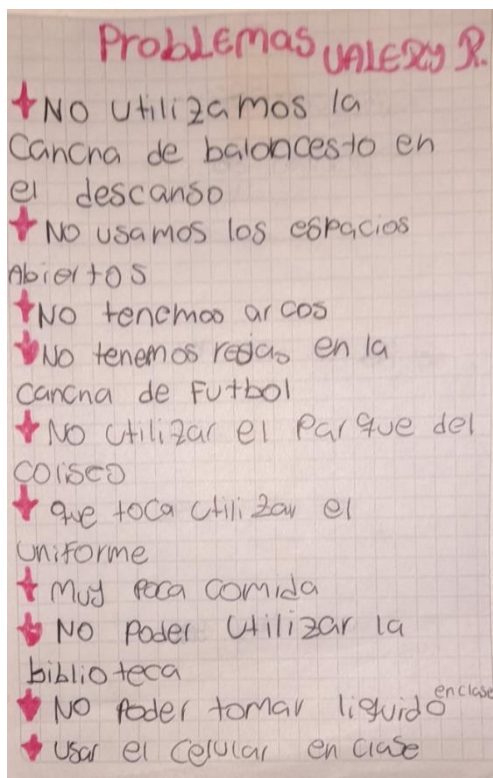 Problemas VALERY R.
+ No utilizamos la
Cancha de baloncesto en
el descanso
+ No usamos los espacios
Abiertos
+ No tenemos arcos
+ No tenemos rejas en la
Cancha de Futbol
+ No utilizar el Parque del
coliseo
+ que toca utilizar el
uniforme
+ Muy poca comida
+ No Poder utilizar la
biblioteca
+ No Poder tomar liquido en clase
+ usar el celular en clase